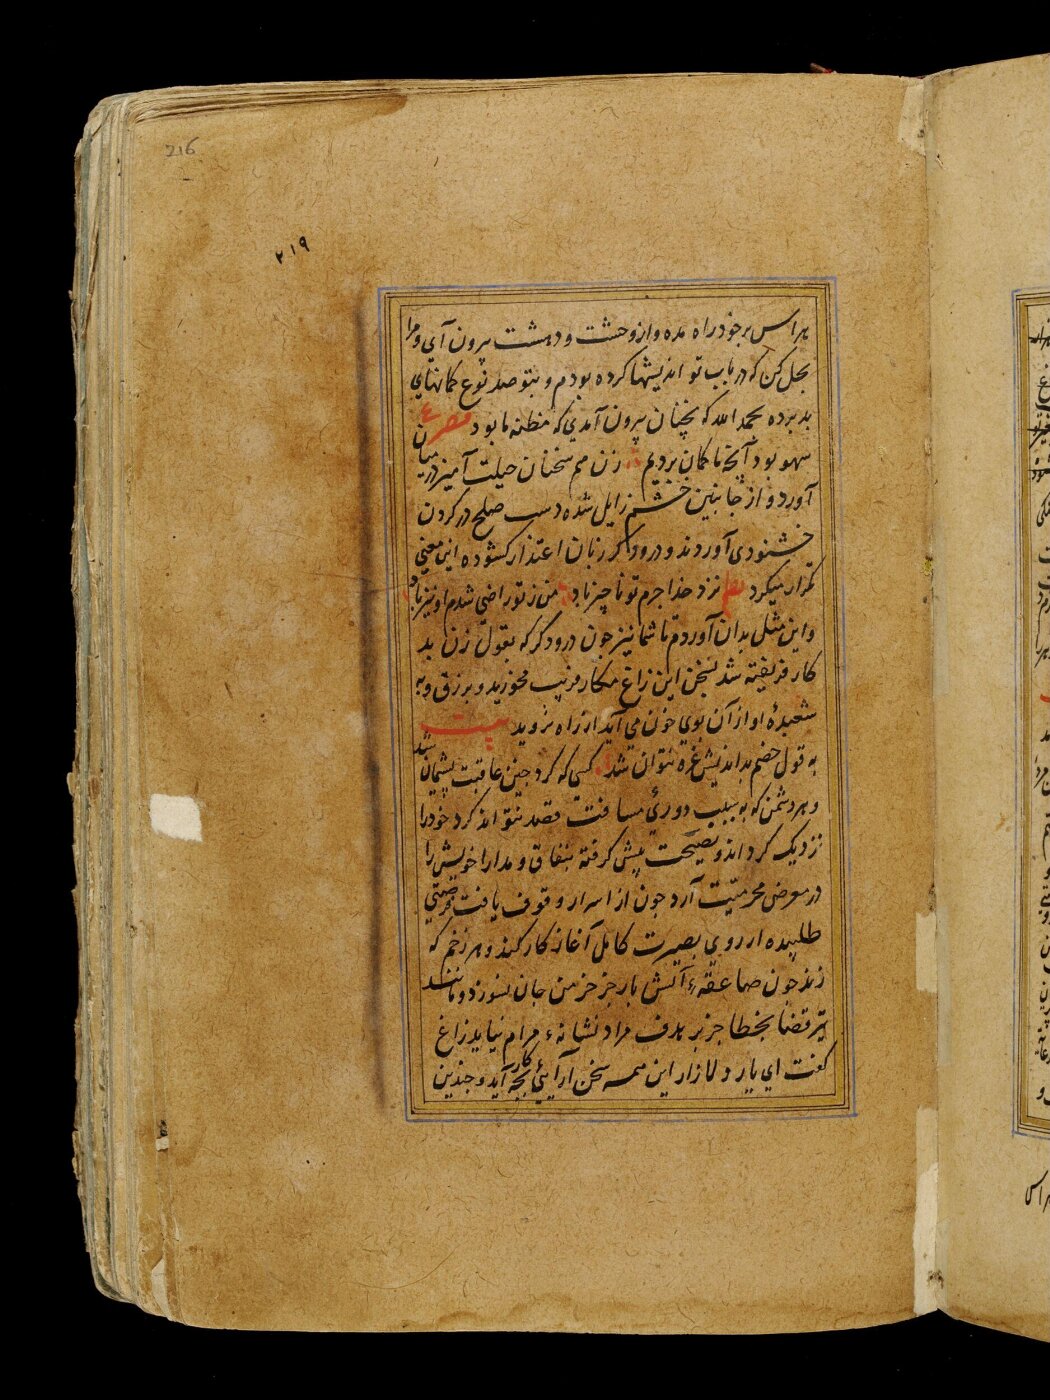 216
۲۱۹
هراس بر خود راه مده و از وحشت و دهشت بیرون آی و مرا
بحل کن که در باب تو اندیشها کرده بودم و بتو صد نوع کمانهای
بد برده بحمد الله که بچنان بیرون آمدی که مظنه ما بود مصرع
سهو بود آنچه ما کمان بردیم زن هم سخنان حیلت آمیز در میان
آورد و از جانبین خشم زایل شده دست صلح در کردن
خشنودی آوردند و درودگر زبان اعتذار کشوده این معنی
تکرار میکرد نظم نزد خدا جرم تو ناچیز باد من ز تو راضی شدم او نیز باد
و این مثل بدان آوردم تا شما نیز جون درودگر که بقول زن بد
کار فریفته شد بسخن این زاغ مکار فریب مخورید و برزق و به
شعبدهٔ او از آن بوی خون می آید از راه نروید بیت
به قول خصم بداندیش غره نتوان شد کسی که کرد جنین عاقبت پشیمان شد
و هر دشمن که به سبب دوری مسافت قصد نتواند کرد خود را
نزدیک کرداند و نصیحت پیش کرفته بنفاق و مدارا خویش را
در معرض محرمیت آرد جون از اسرار وقوف یافت فرصتی
طلبیده از روی بصیرت کامل آغاز کار کند و هر زخم که
زند جون صاعقهٔ آتش بار جز خرمن جان نسوزد و مانند
تیر قضا بخطا جز بر هدف مراد نشانهٔ مرام نیاید زاغ
کفت ای یار دلازار این همه سخن آرایئ بچه کار آید و جندین